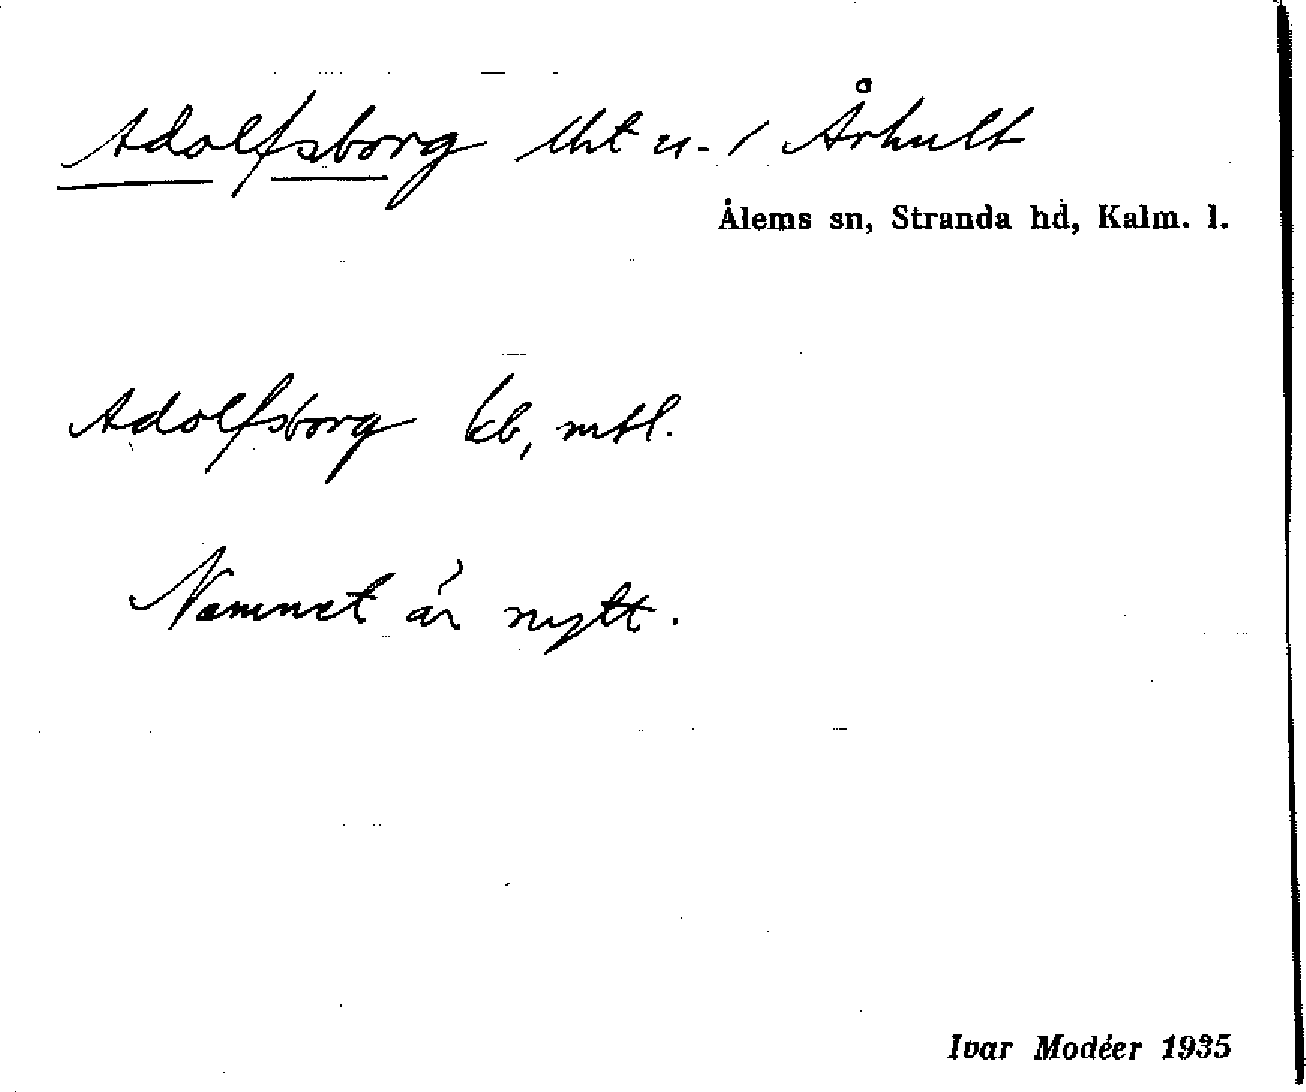 Adolfsborg lht u. / Århult
Ålems sn, Stranda hd, Kalm. l.
Adolfsborg kb, mtl.
Namnet är nytt.
Ivar Modéer 1935